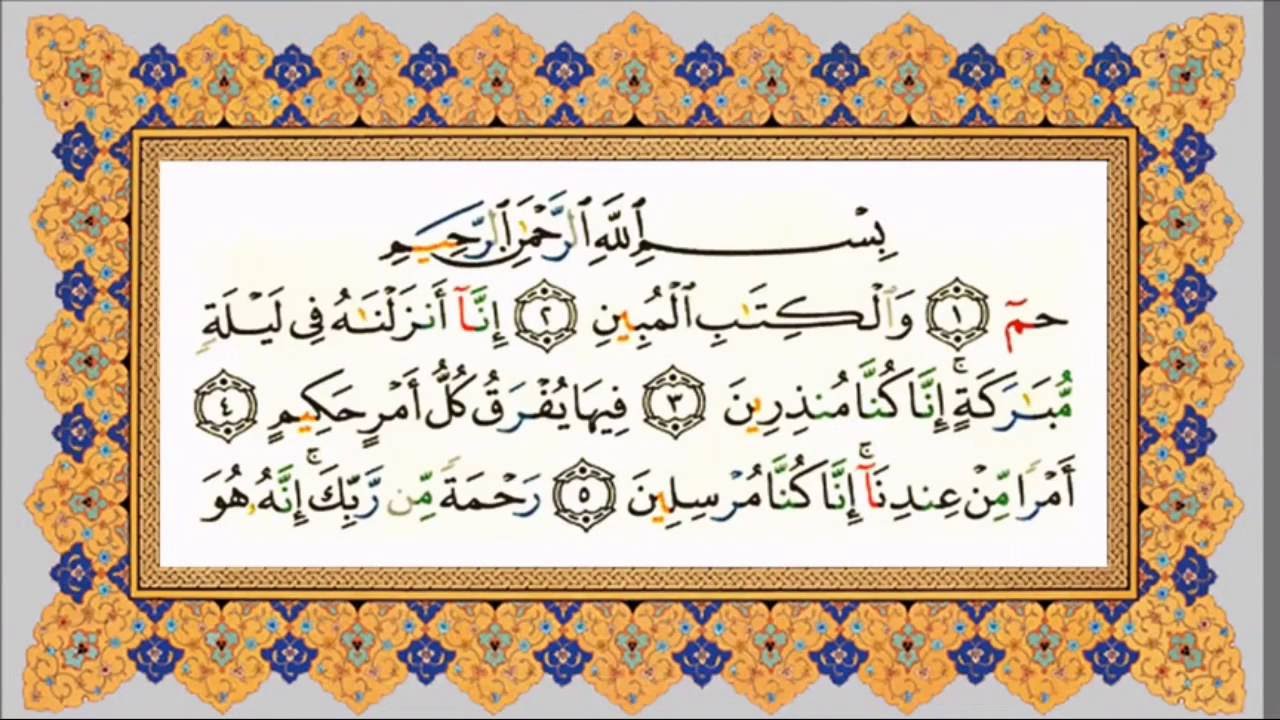 بِسْمِ ٱللَّهِ ٱلرَّحْمَٰنِ ٱلرَّحِيمِ
حمٓ ١ وَٱلْكِتَٰبِ ٱلْمُبِينِ ٢ إِنَّآ أَنزَلْنَٰهُ فِى لَيْلَةٍ
مُّبَٰرَكَةٍ ۚ إِنَّا كُنَّا مُنذِرِينَ ٣ فِيهَا يُفْرَقُ كُلُّ أَمْرٍ حَكِيمٍ ٤
أَمْرًا مِّنْ عِندِنَآ ۚ إِنَّا كُنَّا مُرْسِلِينَ ٥ رَحْمَةً مِّن رَّبِّكَ ۚ إِنَّهُۥ هُوَ